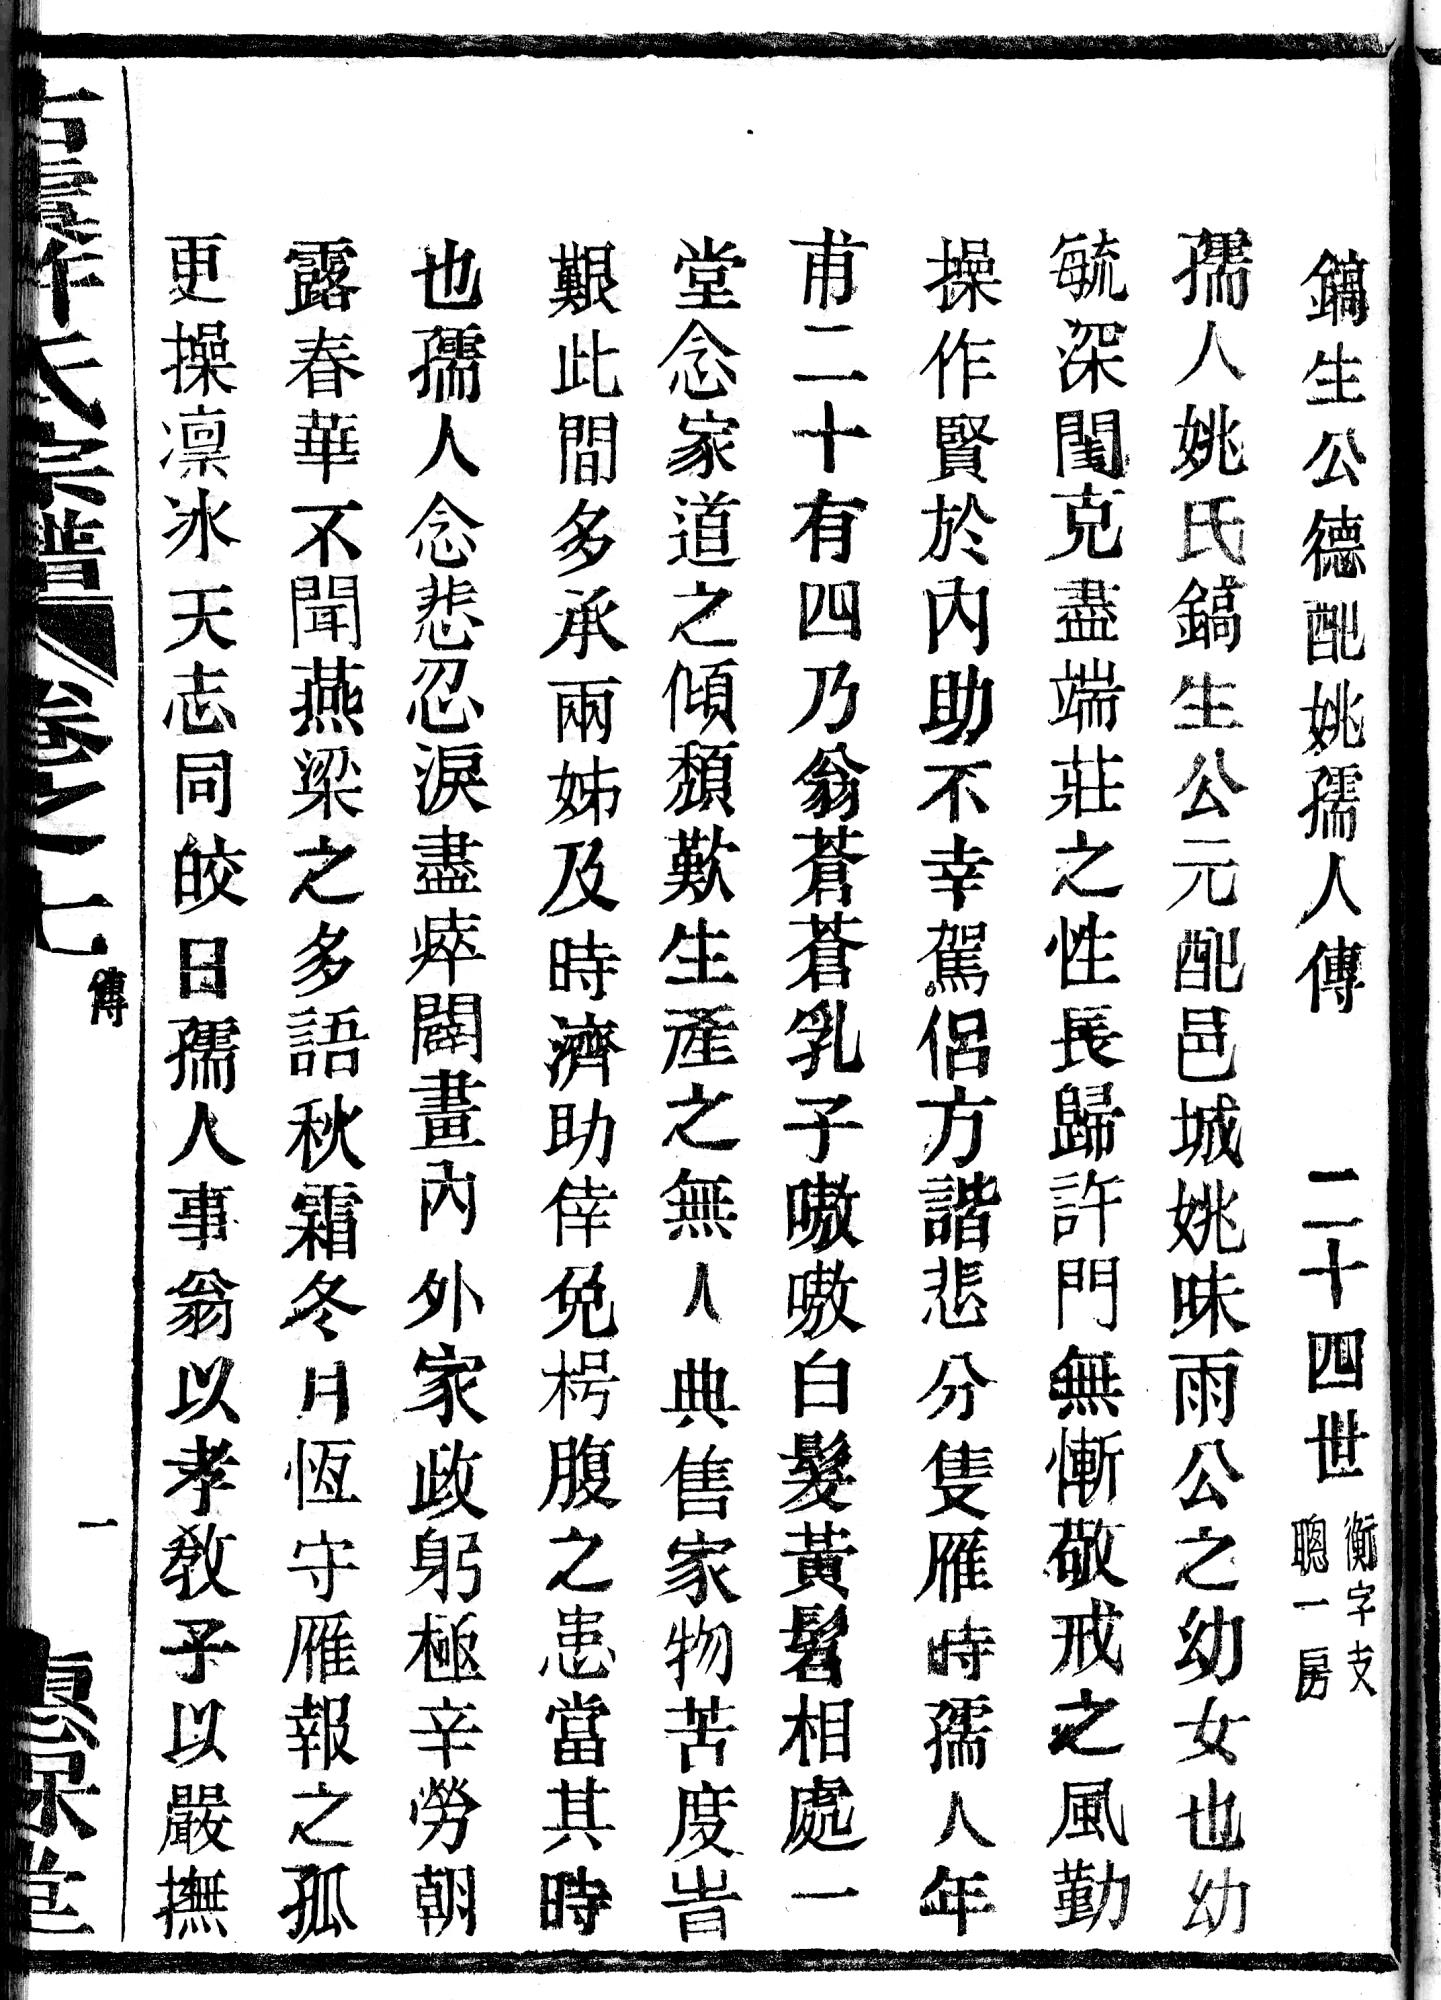 鎬生公德配姚孺人傳 二十四世 衡字支
聰一房
孺人姚氏鎬生公元配邑城姚昧雨公之幼女也幼
毓深閨克盡端莊之性長歸許門無慚敬戒之風勤
操作賢於內助不幸鴛侶方諧悲分隻雁時孺人年
甫二十有四乃翁蒼蒼乳子嗷嗷白髮黃髫相處一
堂念家道之傾頽歎生產之無人典售家物苦度時
艱此間多承兩姊及時濟助倖免枵腹之患當其時
也孺人念悲忍淚盡瘁闢畫內外家政躬極辛勞朝
露春華不聞燕梁之多語秋霜冬月恆守雁報之孤
更操凛冰天志同皎日孺人事翁以孝教子以嚴撫
古虞許氏宗譜 卷之七 傳 一 惠保堂